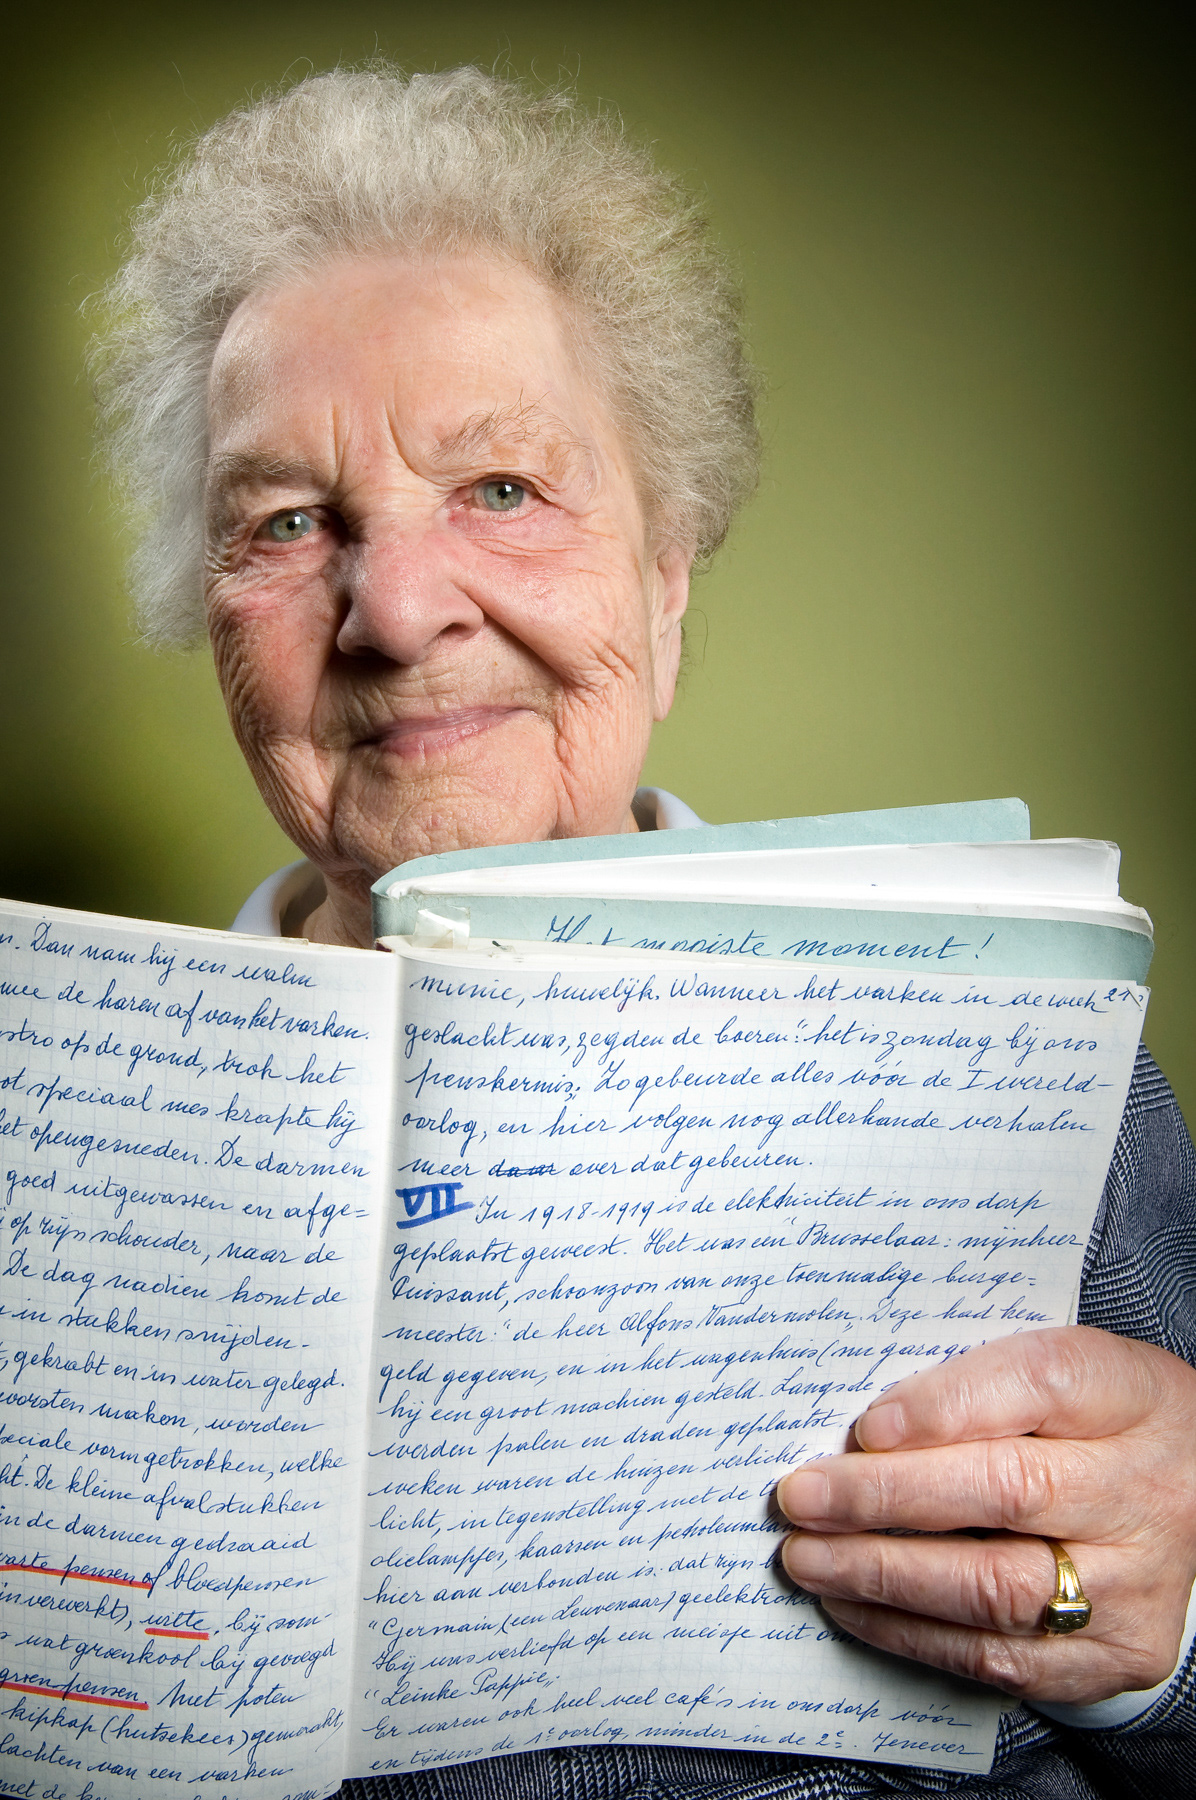 Het mooiste moment!
Dan nam hij een walm
mee de haren af van het varken.
stro op de grond, trok het
speciaal mes krapte hij
opengesneden. De darmen
goed uitgewassen en afge=
op zijn schouder, naar de
De dag nadien komt de
in stukken snijden.
gekrabt en in water gelegd.
worsten maken, worden
speciale vorm getrokken, welke
De kleine afvalstukken
in de darmen gedraaid
zwarte pensen of bloedpensen
inverwerkt), witte, bij som-
wat groenkool bij gevoegd
groen pensen. Met poten
kipkap (hutsekees) gemaakt,
slachten van een varken
met de
21
munie, huwelijk. Wanneer het varken in de week
geslacht was, zegden de boeren: "het is zondag bij ons
penskermis". Zo gebeurde alles vóór de I wereld-
oorlog, en hier volgen nog allerhande verhalen
meer daar over dat gebeuren.
VII In 1918-1919 is de elektriciteit in ons dorp
geplaatst geweest. Het was een "Brusselaar: mijnheer
Puissant, schoonzoon van onze toenmalige burge=
meester: "de heer Alfons Vandermolen". Deze had hem
geld gegeven, en in het wagenhuis (nu garage)
hij een groot machien gesteld. Langs de
werden palen en draden geplaatst.
weken waren de huizen verlicht
licht, in tegenstelling met de
olielampjes, kaarsen en petroleumlam
hier aan verbonden is: dat zijn
"Germain (een Leuvenaar) geelektrokut
Hij was verliefd op een meisje uit ons
"Leinke Pappie"
Er waren ook heel veel café's in ons dorp vóór
en tijdens de 1e oorlog, minder in de 2e. Jenever